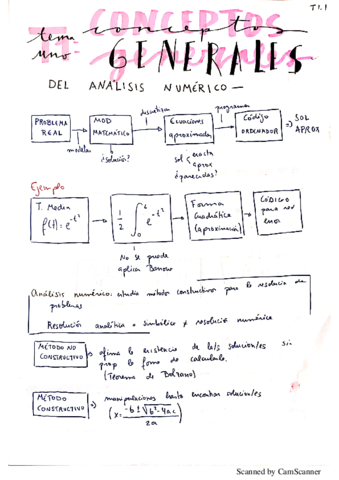 T1.1
CONCEPTOS
tema conceptos
uno GENERALES
DEL ANÁLISIS NUMÉRICO —
discretizar
programar
PROBLEMA REAL
MOD MATEMÁTICO
Ecuaciones aproximadas
Código ORDENADOR
=> SOL APROX
modelar
¿solución?
sol exacta
aprox
¿parecidas?
Ejemplo
T. Media
f(t)=e^{-t²}
1/2 ∫₀² e^{-t²}
Forma Cuadrática (aproximación)
CÓDIGO para
No se puede
aplicar Barrow
Análisis numérico: estudia métodos constructivos para la resolución de
problemas
Resolución analítica = simbólica ≠ resolución numérica
MÉTODO NO CONSTRUCTIVO
=> afirma la existencia de la/s solucion/es sin
la forma de calcularla.
(Teorema de Bolzano)
MÉTODO CONSTRUCTIVO
=> manipulaciones hasta encontrar solucion/es
(x = (-b ± √(b² - 4ac)) / 2a
Scanned by CamScanner